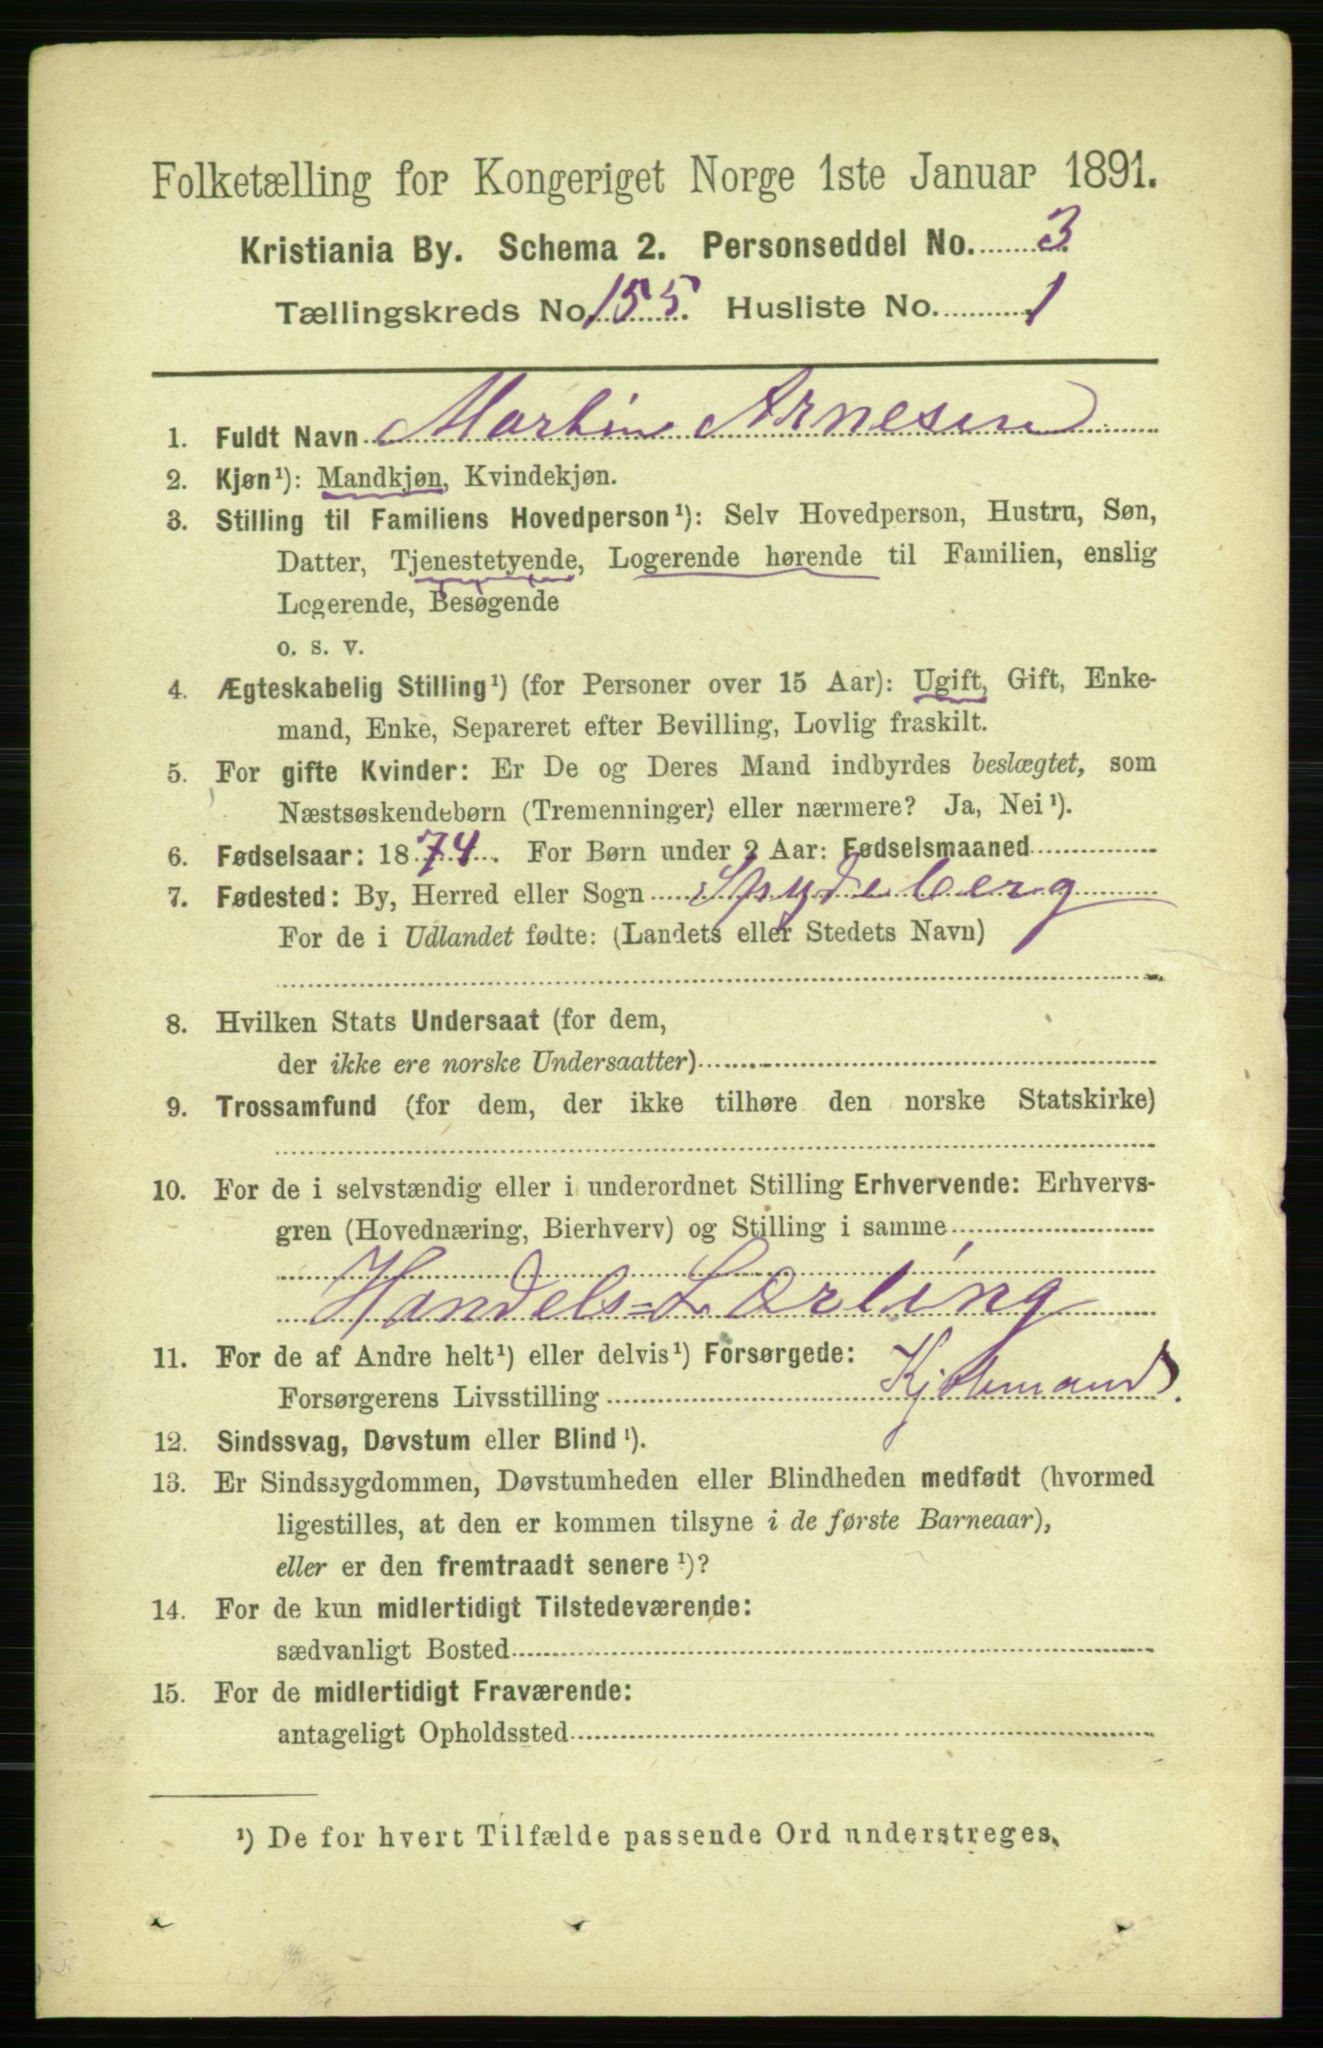 Folketælling for Kongeriget Norge 1ste Januar 1891.
Kristiania By. Schema 2. Personseddel No. 3
Tællingskreds No. 155. Husliste No. 1
1. Fuldt Navn Martin Arnesen
2. Kjøn¹): Mandkjøn, Kvindekjøn.
3. Stilling til Familiens Hovedperson¹): Selv Hovedperson, Hustru, Søn,
Datter, Tjenestetyende, Logerende hørende til Familien, enslig
Logerende, Besøgende
o. s. v.
4. Ægteskabelig Stilling¹) (for Personer over 15 Aar): Ugift, Gift, Enke-
mand, Enke, Separeret efter Bevilling, Lovlig fraskilt.
5. For gifte Kvinder: Er De og Deres Mand indbyrdes beslægtet, som
Næstsøskendebørn (Tremenninger) eller nærmere? Ja, Nei¹).
6. Fødselsaar: 1874. For Børn under 2 Aar: Fødselsmaaned
7. Fødested: By, Herred eller Sogn Spydeberg
For de i Udlandet fødte: (Landets eller Stedets Navn)
8. Hvilken Stats Undersaat (for dem,
der ikke ere norske Undersaatter)
9. Trossamfund (for dem, der ikke tilhøre den norske Statskirke)
10. For de i selvstændig eller i underordnet Stilling Erhvervende: Erhvervs-
gren (Hovednæring, Bierhverv) og Stilling i samme
Handels=Lærling
11. For de af Andre helt¹) eller delvis¹) Forsørgede:
Forsørgerens Livsstilling
12. Sindssvag, Døvstum eller Blind¹).
13. Er Sindssygdommen, Døvstumheden eller Blindheden medfødt (hvormed
ligestilles, at den er kommen tilsyne i de første Barneaar),
eller er den fremtraadt senere¹)?
14. For de kun midlertidigt Tilstedeværende:
sædvanligt Bosted
15. For de midlertidigt Fraværende:
antageligt Opholdssted
¹) De for hvert Tilfælde passende Ord understreges.